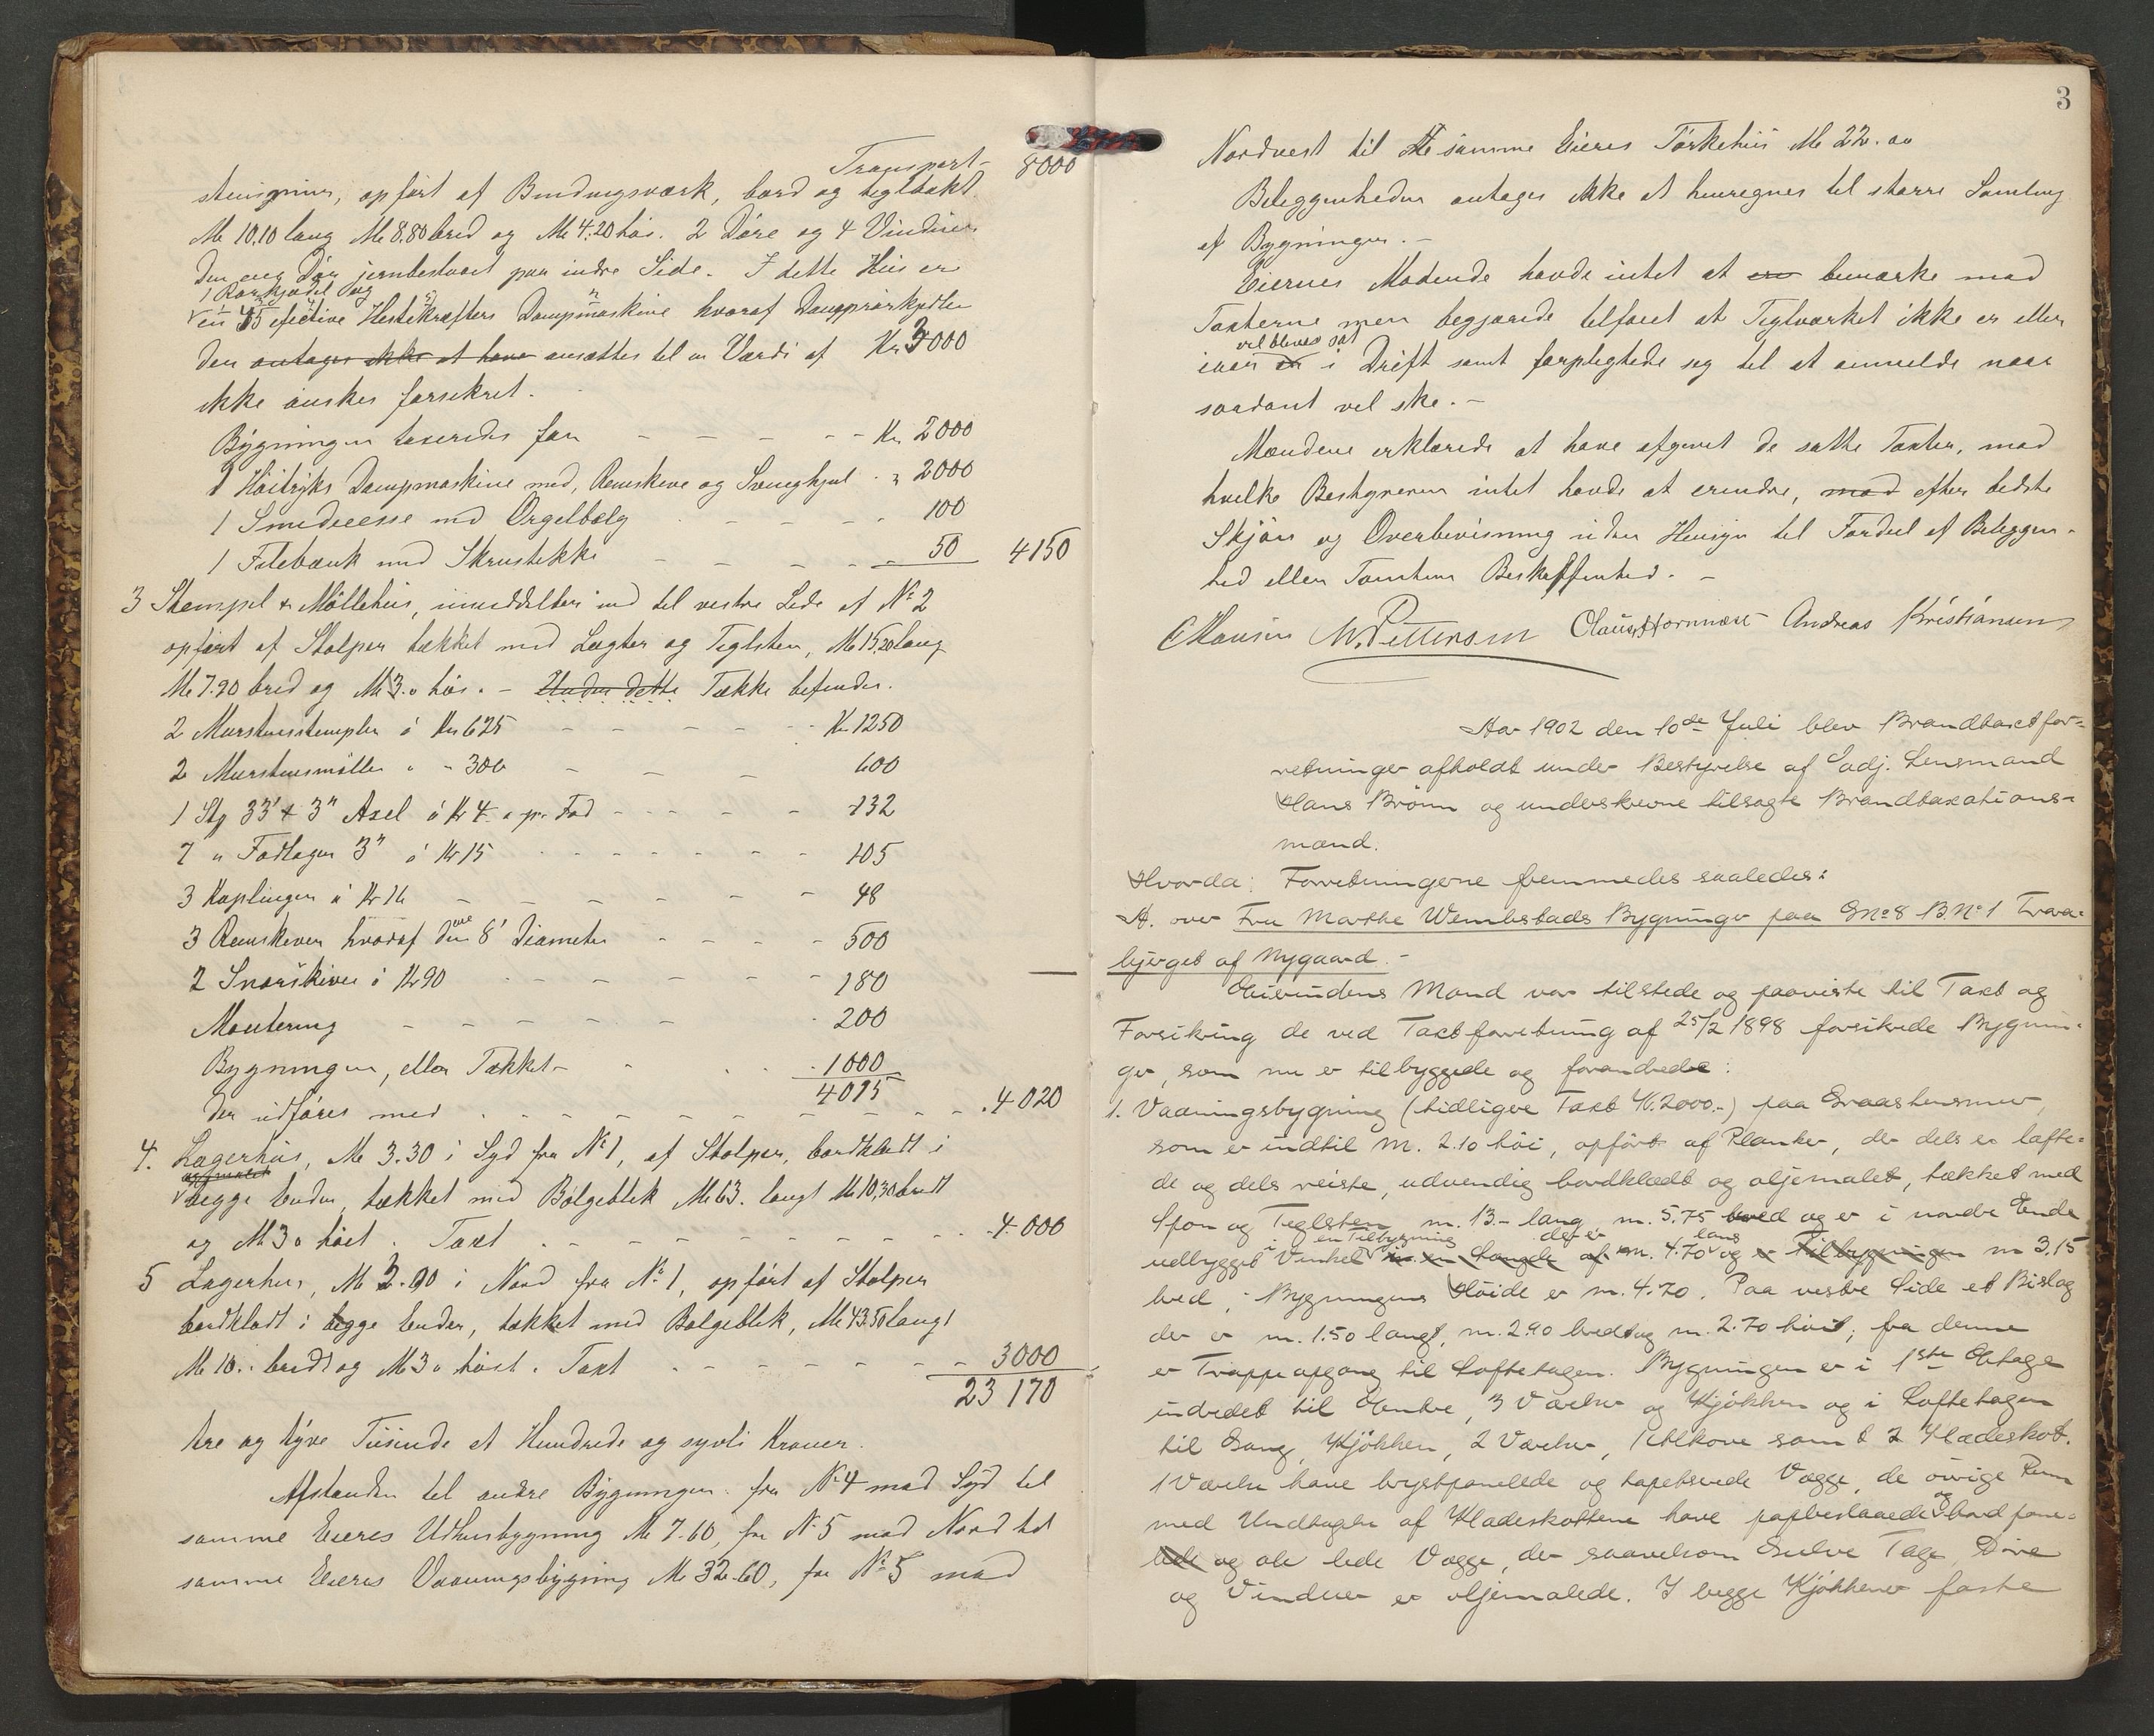 Transport- 8000
stensmur, opført af Bindingsværk, bord og tegltækt
M 10.10 lang M 8.80 bred og M 4.20 høi. 2 Døre og 4 Vinduer
Den ene Dør jernbeslaaet paa indre Side. I dette Hus er
1 Rørkjedel og
en 45 efective Hestekræfters Dampmaskine hvoraf Damprørkjedlen
der antages ikke at have ansættes til en Værdi af Kr 3000
ikke ønskes forsikret.
Bygningen taxeredes for - - - - - Kr 2000
1 Høitryks Dampmaskine med, Remskive og Svinghjul - " 2000
1 Smedeesse med Orgelbælg - - - - 100
1 Filebænk med Skruestikke - - - - 50 4150
3 Stempel & Møllehus, umiddelbar ind til vestre Side af No 2
opført af Stolper tækket med Lægter og Teglsten, M 15.20 lang
M 7.90 bred og M 3.0 høi. - Under dette Tække befindes.
2 Murstensstempler á Kr 625 - - - - - Kr. 1250
2 Murstensmøller " - 300 - - - 600
1 Stg 33' & 3" Axel á Kr 4. " pr. Fod - - - - - 132
7 " Fodlager 3" á Kr 15 - - - - - - - 105
3 Koplinger á Kr 16 - - - - - - 48
3 Remskiver hvoraf den ene 8' Diameter - - - - 500
2 Snorskiver á Kr 90 - - - - - - 180
Montering - - - - - 200
Bygningen, eller Tækket - - - - 1000
4015
der udføres med - - - - - - - - - 4020
4. Lagerhus, M 3.30 i Syd fra No 1, af Stolper, bordklædt i
og malet
begge Ender, tækket med Bølgeblik M 63. langt M 10.30 bredt
og M 3 0 høit. Taxt - - - - - - - - - 4000
5 Lagerhus, M 2.90 i Nord fra No 1, opført af Stolper
bordklædt i begge Ender, tækket med Bølgeblik, M 43.50 langt
M 10.. bredt og M 3 0 høit. Taxt - - - - - - - 3000
23 170
tre og tyve Tusinde et Hundrede og sytti Kroner.
Afstanden til andre Bygninger fra No 4 mod Syd til
samme Eieres Udhusbygning M 7.60, fra No 5 mod Nord til
samme Eieres Vaaningsbygning M 32.60, fra No 5 mod
3
Nordvest til de samme Eieres Tørkehus M 22.00
Beleggenheden antages ikke at henregnes til større Samling
af Bygninger. -
Eiernes Mødende havde intet at er bemærke mod
Taxterne men begjærede tilføiet at Teglværket ikke er eller
vil blive sat
iaar er i Drift samt forpligtede sig til at anmelde naar
saadant vil ske. -
Mændene erklærede at have afgivet de satte Taxter, mod
hvilke Bestyreren intet havde at erindre, mod efter bedste
Skjøn og Overbevisning uden Hensyn til Fordeel af Beleggen-
hed eller Tomtens Beskaffenhed. -
C Hansen M. Pettersen Claus Hornnæss Andreas Kristiansen
Aar 1902 den 10de Juli blev Brandtaxtfor-
retninger afholdt under Bestyrelse af Ladj. Lensmand
Hans Brønn og underskrevne tilsagte Brandtaxations-
mænd.
Hvorda: Forretningerne fremmedes saaledes:
A. over Fru Marthe Wembstads Bygninger paa G No 8 B. No 1 Traa-
bjerget af Nygaard. -
Eierindens Mand var tilstede og paaviste til Taxt og
Forsikring de ved Taxtforretning af 25/2 1898 forsikrede Bygnin-
ger, som nu er tilbyggede og forandrede:
1. Vaaningsbygning (tidligere Taxt Kr. 2000.-) paa Graastensmur,
som er indtil m. 2.10 høi, opført af Planker, der dels er lafte-
de og dels reiste, udvendig bordklædt og oljemalet, tækket med
Spon og Teglsten m. 13.- lang, m. 5.75 bred og er i nordre Ende
i en Tilbygning der er lang
udbygget Vinkel i en Længde af m. 4.70 og er Tilbygningen m 3.15
bred, - Bygningens Høide er m. 4.70. Paa vestre Side et Bislag
der er m. 1.50 langt, m. 2.90 bredt og m. 2.70 høit; fra denne
er Trappeopgang til Loftetagen. Bygningen er i 1ste Etage
indredet til Entre, 3 Værelser og Kjøkken og i Loftetagen
til Gang, Kjøkken, 2 Værelser, 1 Alkove samt 2 Klædeskot.
1 Værelse have brystpanelede og tapetserede Vægge, de øvrige Rum
med Undtagelse af Klædeskottene have papbeslaaede og bordpane-
lede og ale lede Vægge, der saavelsom Gulve Tage, Døre
og Vinduer er oljemalede. I begge Kjøkkener faste